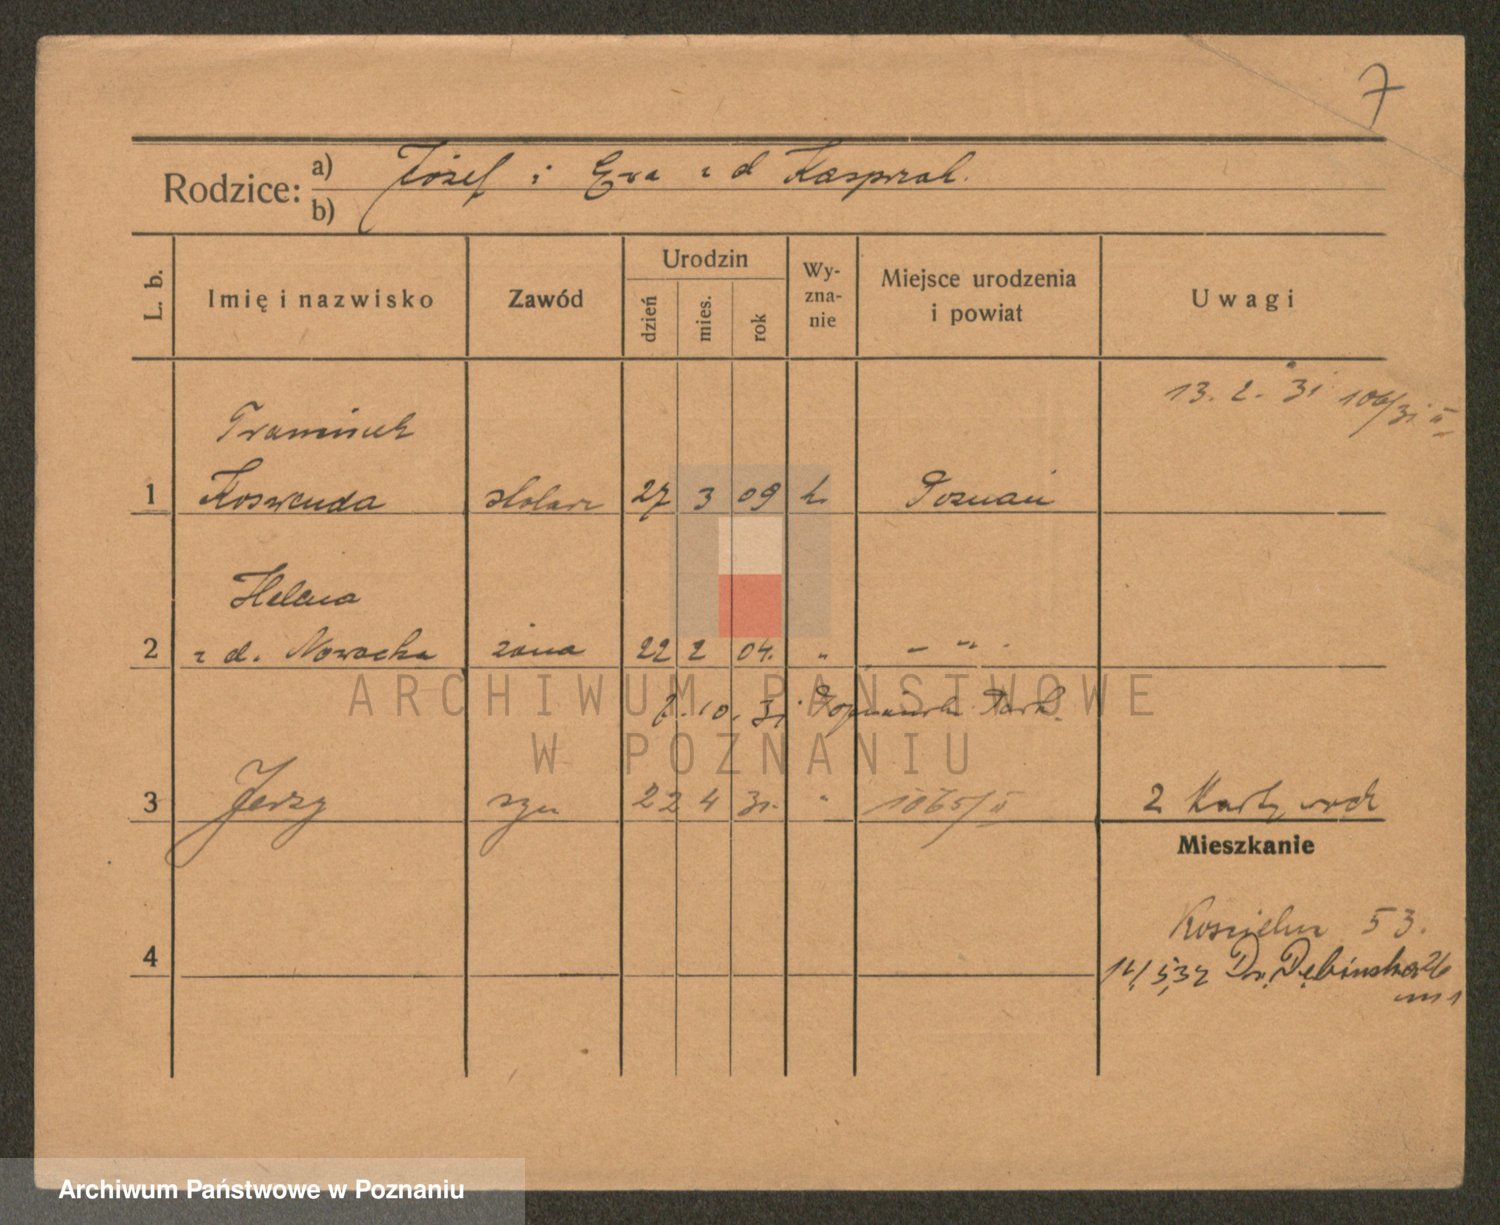 7
Rodzice: a) Józef i Ewa z d Kasprzak.
b)
L. b.
Imię i nazwisko
Zawód
Urodzin
dzień
mies.
rok
Wy-
zna-
nie
Miejsce urodzenia
i powiat
Uwagi
13. 2. 31 106/31 II
Franciszek
1 Koszenda stolarz 27 3 09 k. Poznań
Helena
2 z d. Nowacka żona 22 2 04. " - " -
10. 31.
3 Jerzy syn 22 4 31. " 1065/II 2 Karty
Mieszkanie
4
Kościelna 53.
5,32 Dębińska 26
m 1
ARCHIWUM PAŃSTWOWE
W POZNANIU
Archiwum Państwowe w Poznaniu